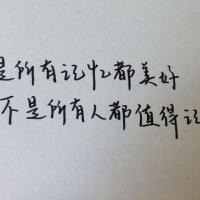 是所有记忆都美好
不是所有人都值得记